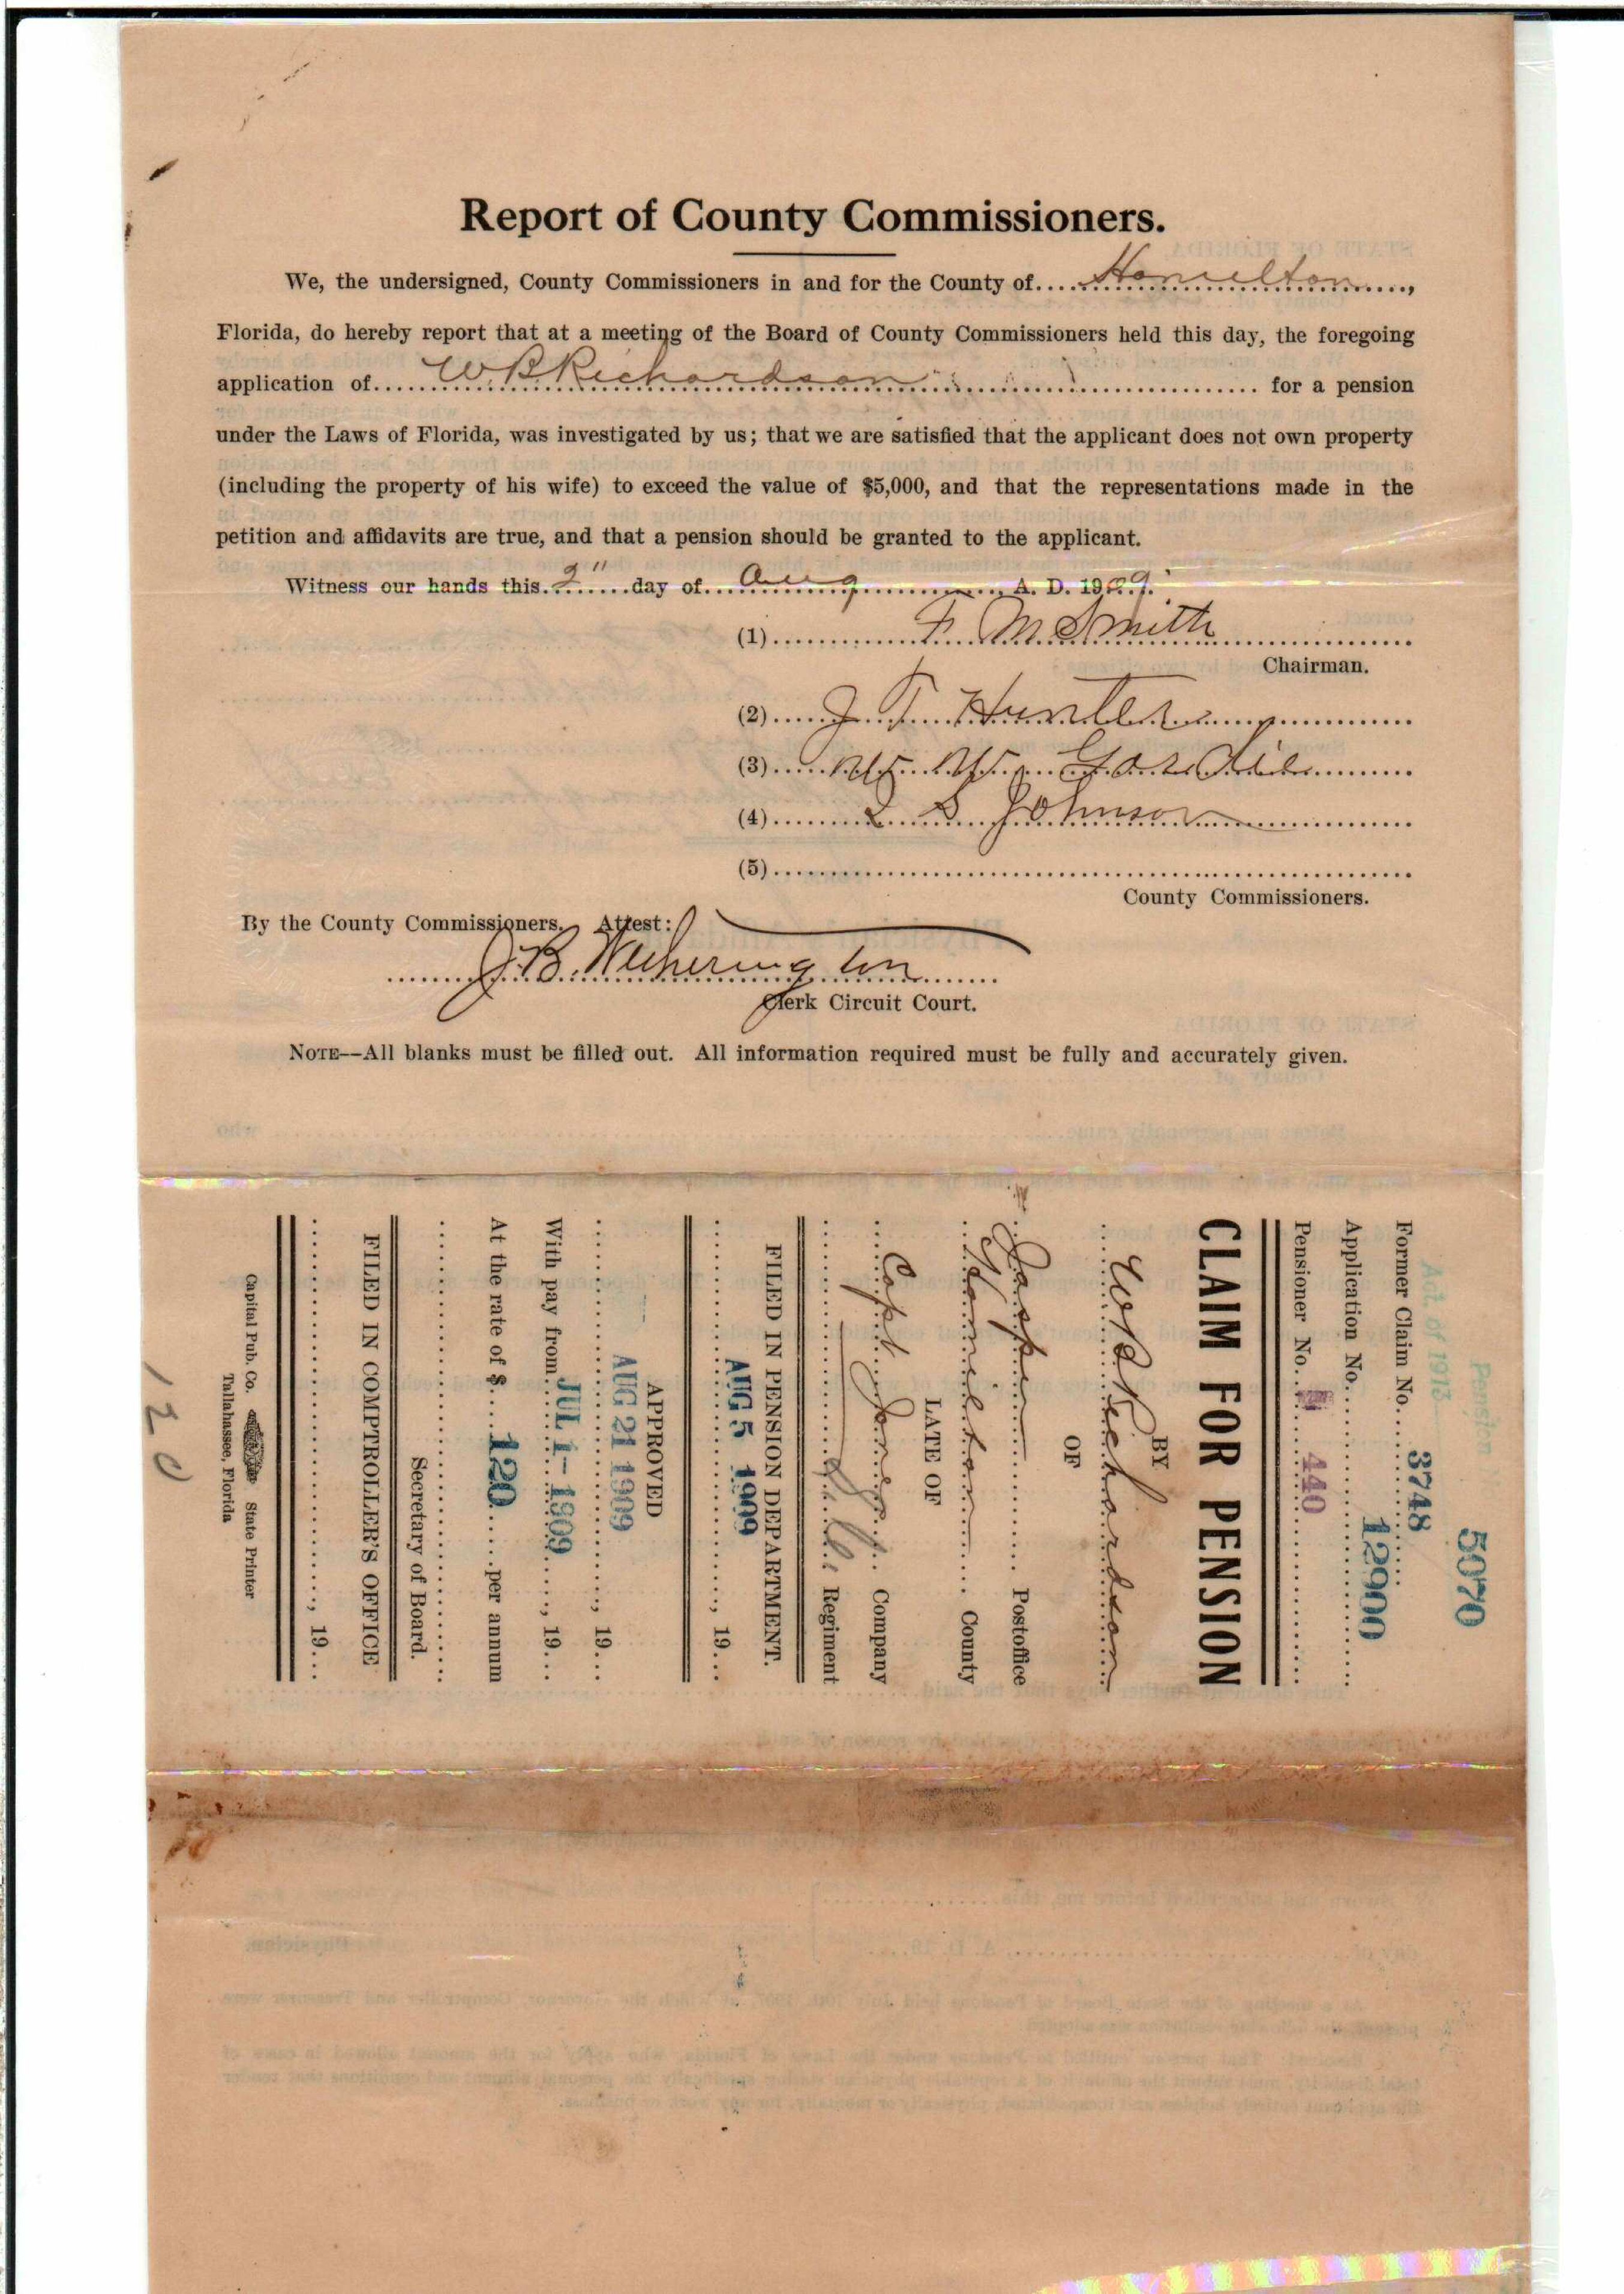 Report of County Commissioners.
We, the undersigned, County Commissioners in and for the County of Hamilton,
Florida, do hereby report that at a meeting of the Board of County Commissioners held this day, the foregoing
application of W B Richardson for a pension
under the Laws of Florida, was investigated by us; that we are satisfied that the applicant does not own property
(including the property of his wife) to exceed the value of $5,000, and that the representations made in the
petition and affidavits are true, and that a pension should be granted to the applicant.
Witness our hands this 2" day of Aug A. D. 1909.
(1) F. M Smith
Chairman.
(2) J T Hunter
(3) W. W.
(4) L S Johnson
(5)
County Commissioners.
By the County Commissioners. Attest:
J. B. Witherington
Clerk Circuit Court.
NOTE--All blanks must be filled out. All information required must be fully and accurately given.
5070
Pension
Act of 1913
Former Claim No. 3748
Application No. 12900
Pensioner No. 440
CLAIM FOR PENSION
BY
W B Richardson
OF
Jasper Postoffice
Hamilton County
LATE OF
Capt Jones Company
Regiment
FILED IN PENSION DEPARTMENT.
AUG 5 1909, 19
APPROVED
AUG 21 1909, 19
With pay from JUL 1 - 1909, 19
At the rate of $ 120 per annum
Secretary of Board.
FILED IN COMPTROLLER'S OFFICE
, 19
Capital Pub. Co. State Printer
Tallahassee, Florida
120